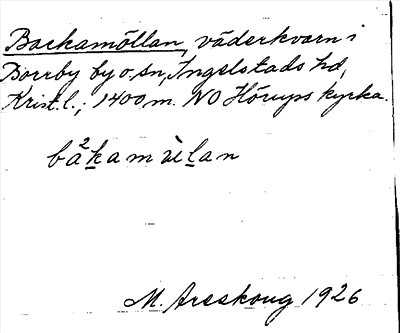 Backamöllan, väderkvarn i
Borrby by o. sn, Ingelstads hd,
Krist. l.; 1400 m. NO Hörups kyrka.
M. Areskoug 1926